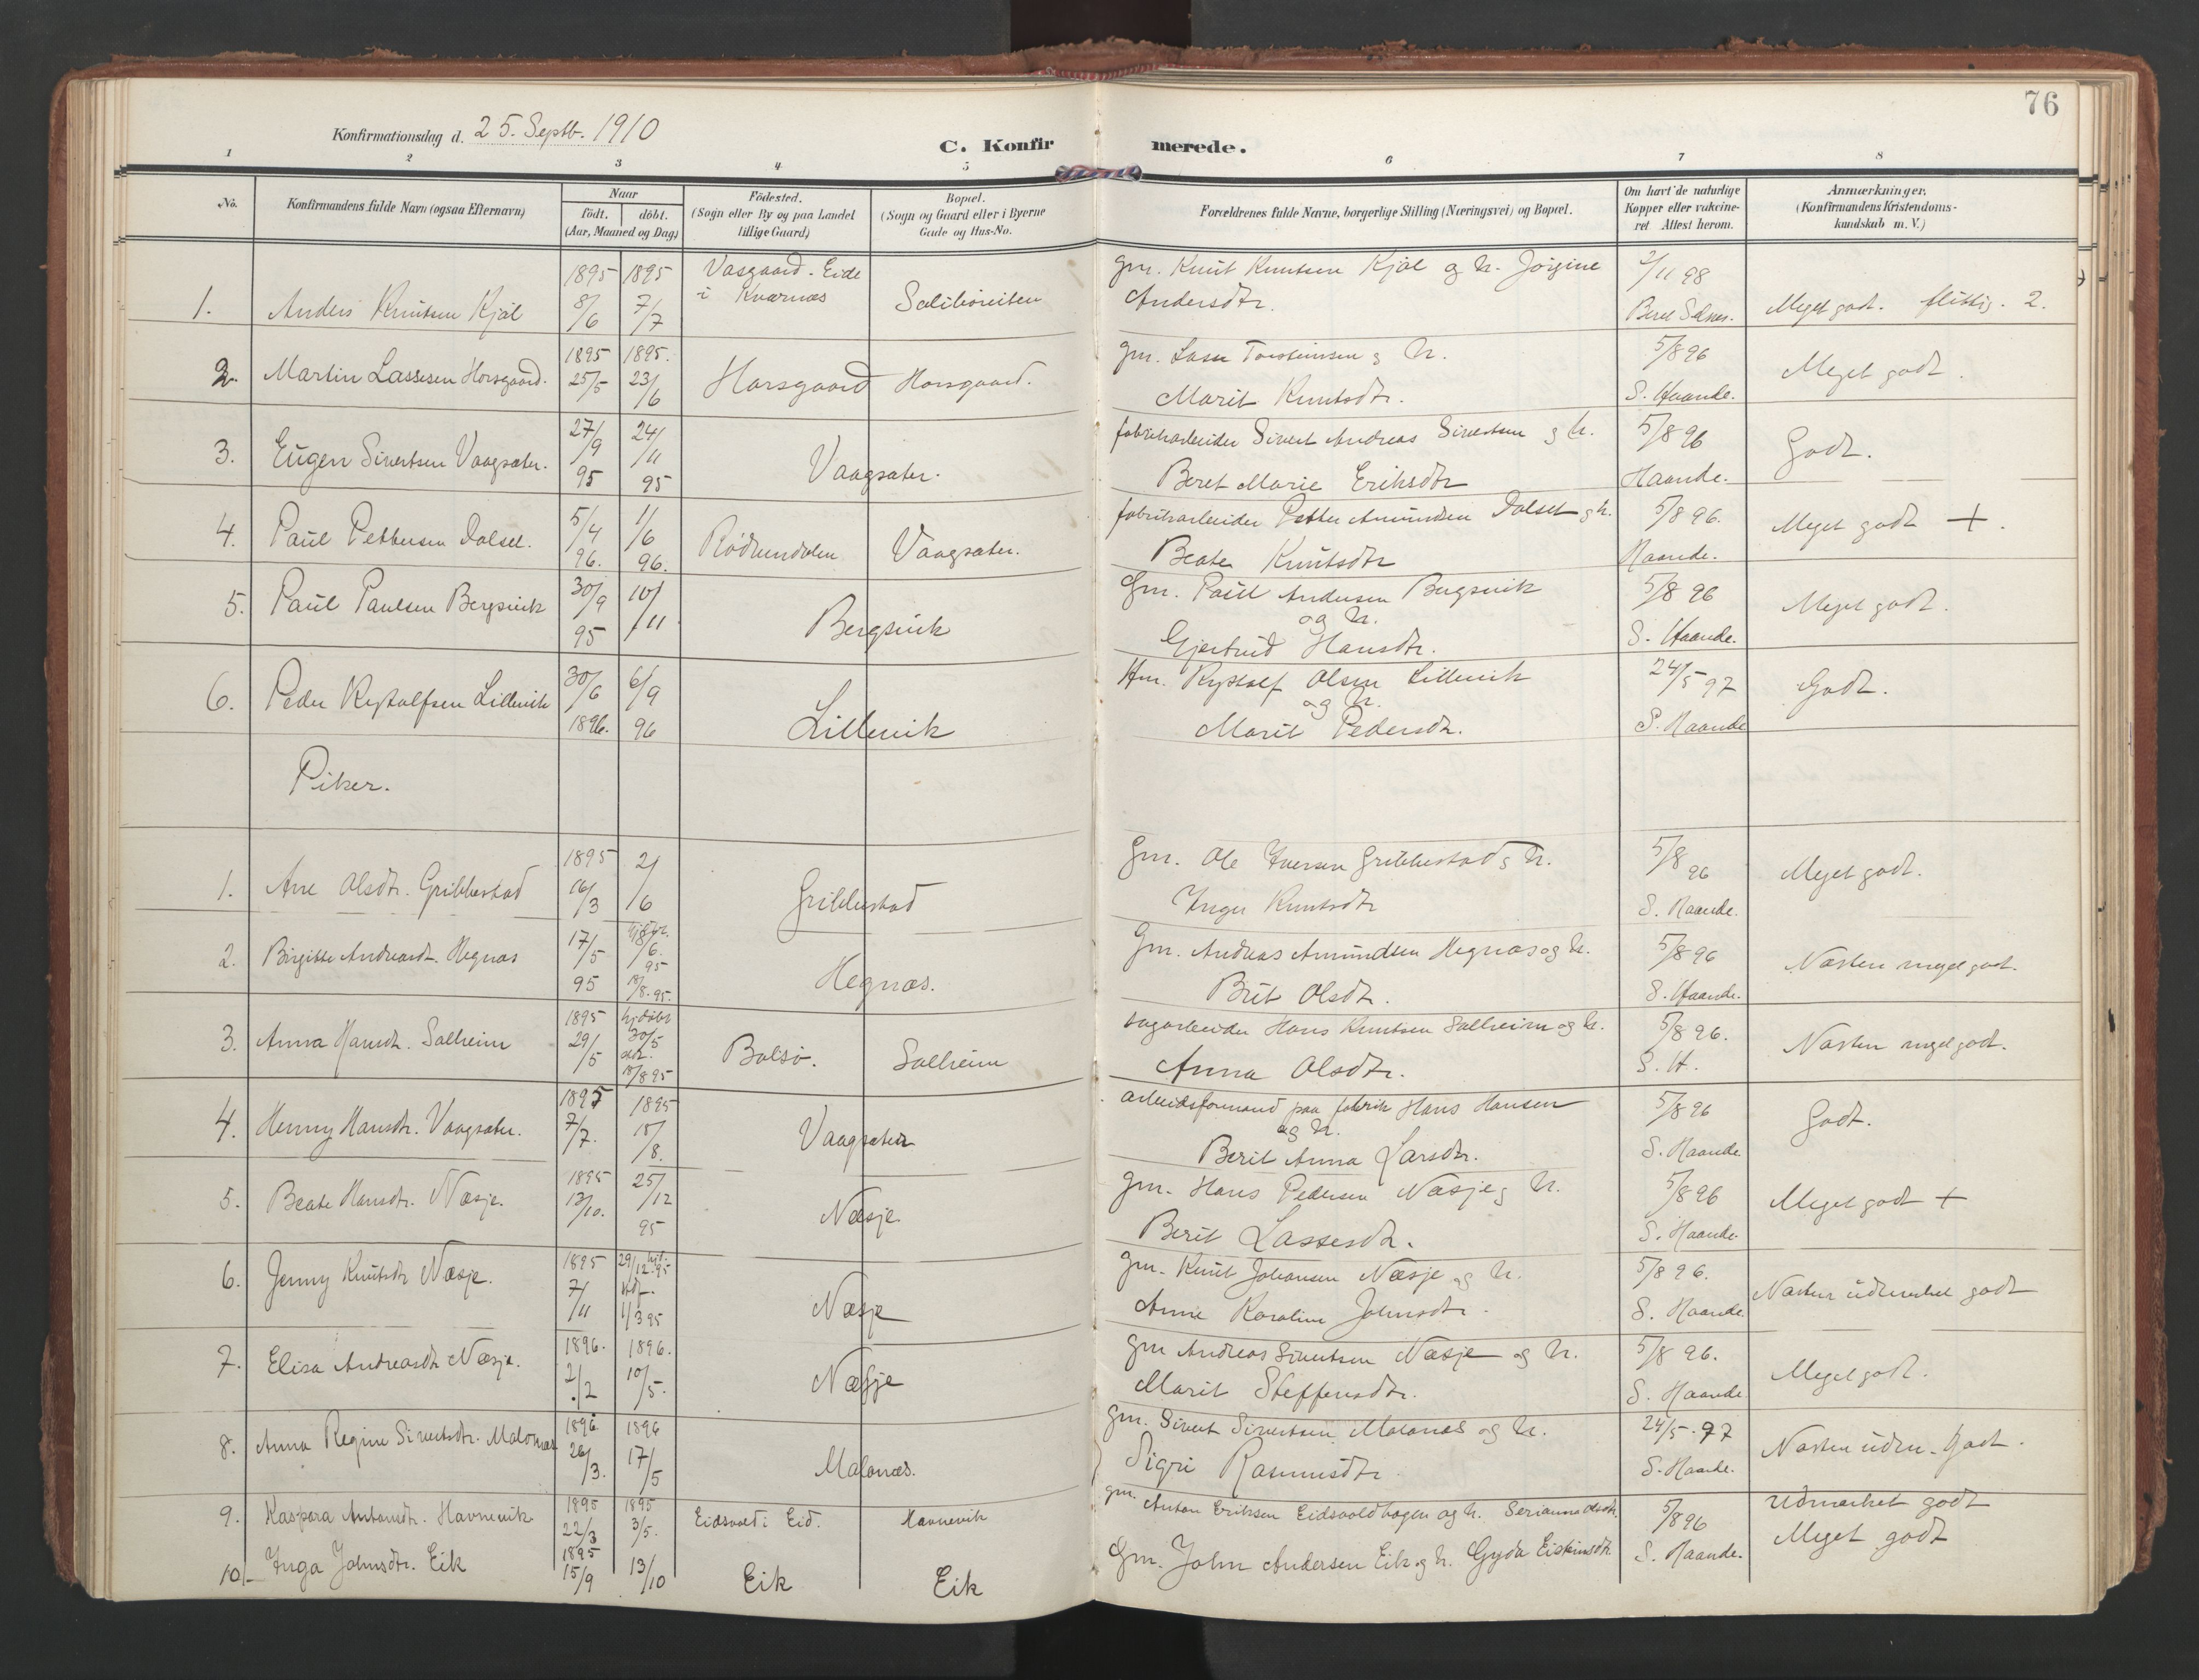 76
Konfirmationsdag d. 25. Septb. 1910
C. Konfirmerede.
1 2 3 4 5 6 7 8
No.
Konfirmandens fulde Navn (ogsaa Efternavn)
Naar
födt. döbt.
(Aar, Maaned og Dag)
Födested.
(Sogn eller By og paa Landet
tillige Gaard)
Bopæl.
(Sogn og Gaard eller i Byerne
Gade og Hus-No.
Forældrenes fulde Navne, borgerlige Stilling (Næringsvei) og Bopæl.
Om havt de naturlige
Kopper eller vakcine-
ret Attest herom.
Anmærkninger.
(Konfirmandens Kristendoms-
kundskab m. V.)
1. Anders Knutsen Kjøl 1895 8/6 1895 7/7 Vasgaard. Eide
i Kvernæs
gm. Knut Knutsen Kjøl og h. Jørgine
Andersdtr.
2/11 98
Meget godt. flittig. 2.
2. Martin Lassesen Horsgaard. 1895 25/5 1895. 23/6 Horsgaard Horsgaard.
gm. Lasse Torsteinsen og h.
Marit Knutsdtr.
5/8 96
S. Haande.
Meget godt.
3. Eugen Sivertsen Vaagsæter. 27/9 95 24/11 95 Vaagsæter.
fabrikarbeider Sivert Andreas Sivertsen og h.
Beret Marie Eriksdtr
5/8 96
Haande.
Godt.
4. Paul Pettersen Dalset. 5/4 96. 1/6 96. Rødvendalen Vaagsæter.
fabrikarbeider Petter Amundsen Dalset og h.
Beate Knutsdtr
5/8 96.
Haande.
Meget godt +.
5. Paul Paulsen Bergsvik 30/9 95 10/11 Bergsvik
Gm. Paul Andersen Bergsvik
og h.
Gjertrud Hansdtr.
5/8 96
S. Haande.
Meget godt.
6. Peder Rystolfsen Lillevik 30/6 1896. 6/9 96 Lillevik
Hm. Rystolf Olsen Lillevik
og h.
Marit Pedersdtr.
24/5 97
S. Haande
Godt.
Piker.
1. Ane Olsdtr. Gribbestad 1895 16/3 2/6 Gribbestad
Gm. Ole Iversen Gribbestad og h.
Inger Knutsdtr
5/8 96
S. Haande.
Meget godt.
2. Birgitte Andreasdt. Hegnæs 17/5 95 18/8. 95. Hegnæs.
Gm. Andreas Amundsen Hegnæs og h.
Brit Olsdtr.
5/8 96
S. Haande.
Næsten meget godt.
3. Anna Hansdtr. Solheim 1895 29/5 hjdøbt 30/5 18/8 95 Bolsø. Solheim
Sagarbeider Hans Knutsen Solheim og h.
Anna Olsdtr.
5/8 96.
S. H.
Næsten meget godt.
4. Henny Hansdtr. Vaagsæter. 1895 7/7. 1895 18/8. Vaagsæter
arbeidsformand paa fabrik Hans Hansen
og h.
Berit Anna Larsdtr.
5/8 96
S. Haande
Godt.
5. Beate Hansdtr. Næsje. 1895 13/10. 25/12 95 Næsje
gm. Hans Pedersen Næsje og h.
Berit Lassesdtr.
5/8 96
S. Haande
Meget godt +
6. Jenny Knutsdtr Næsje. 1895 7/11 29/12 95 1/3 95 Næsje
gm. Knut Johansen Næsje og h.
Anne Karoline Johnsdtr.
5/8 96.
S. Haande
Næsten udmerket godt
7. Elisa Andreasdtr Næsje. 1896. 2/2 1896. 10/5. Næsje
gm Andreas Sivertsen Næsje og h.
Marit Steffensdtr.
5/8 96.
S. Haande
Meget godt.
8. Anna Regine Sivertsdtr. Malonæs 1896 26/3. 1896 17/5 Malonæs.
gm. Sivert Sivertsen Malonæs og h.
Sigri Rasmusdtr.
24/5. 97
S. Haande.
Næsten udm. godt.
9. Kaspara Antonsdtr. Havnevik 1895 22/3 1895 3/5. Eidsvold i Eid. Havnevik
gm. Anton Eriksen Eidsvoldhagen og h. Serianna Olsdtr.
5/8 96
Udmærket godt
10/- Inga Johnsdtr. Eik 1895 15/9 13/10 Eik Eik
Gm. John Andersen Eik og h. Gyda Eistensdtr.
S. Haande.
Meget godt